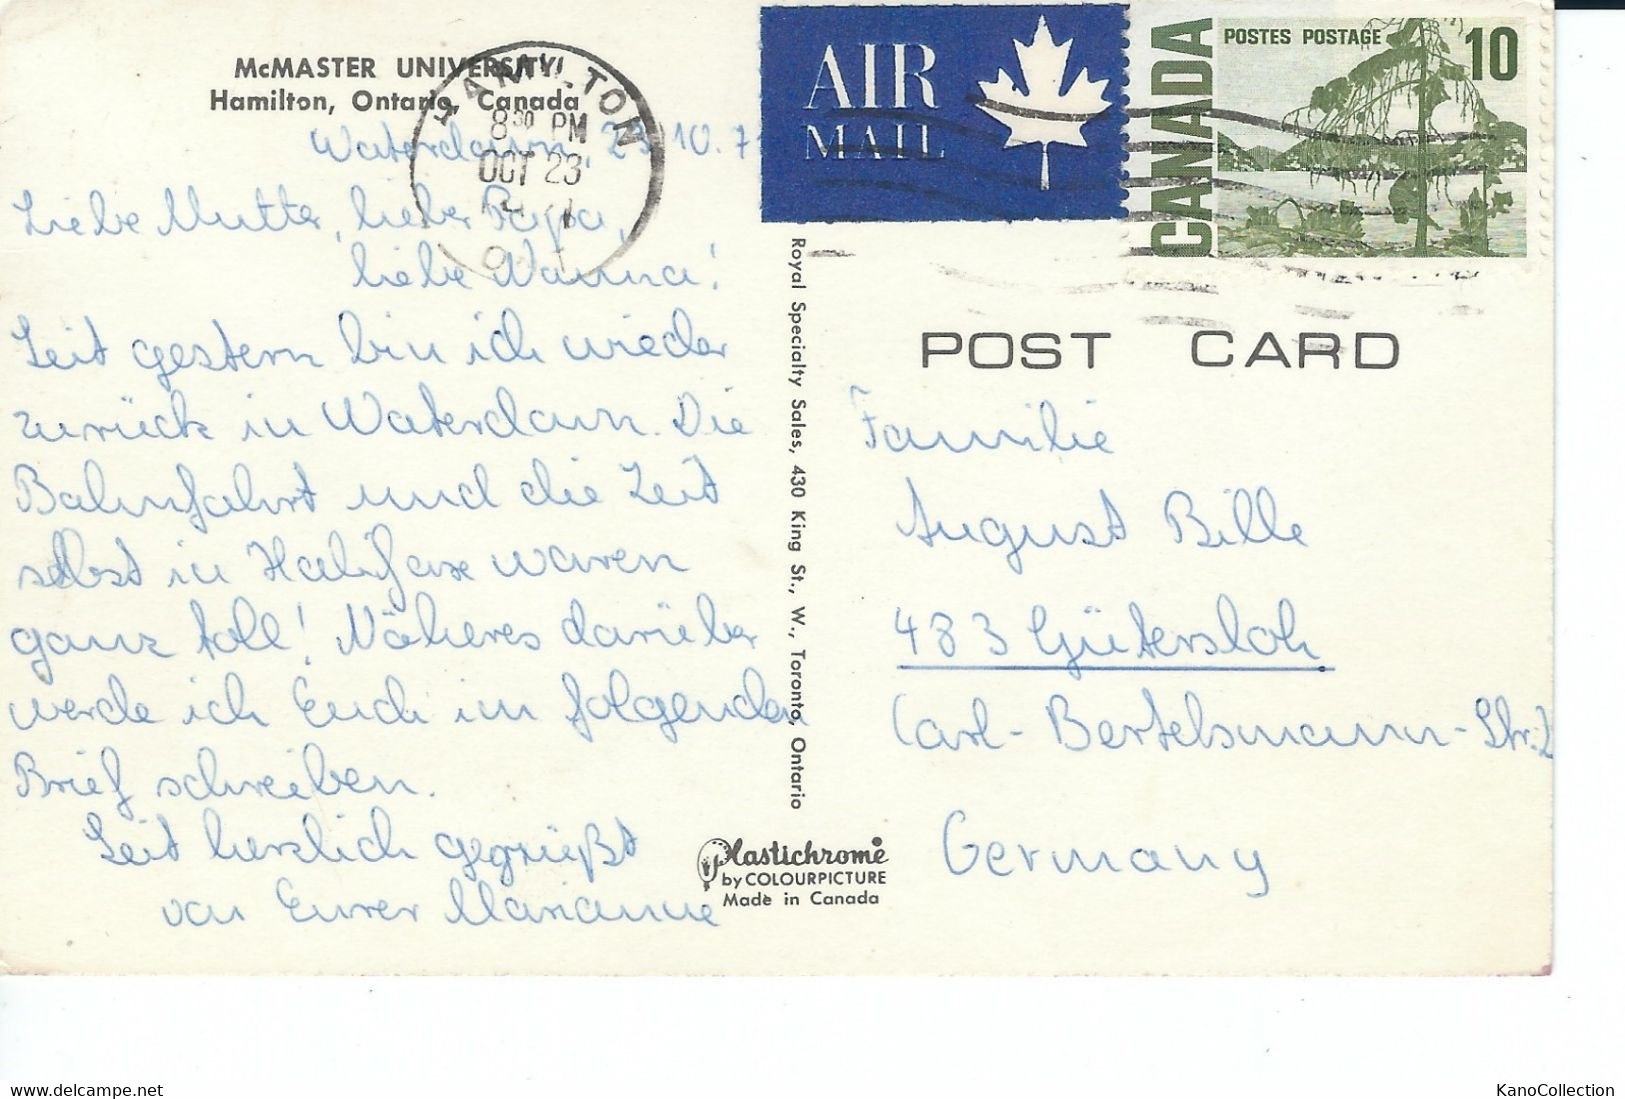 McMASTER UNIVERSITY
Hamilton, Ontario, Canada
HAMILTON
8 30 PM
OCT 23
AIR
MAIL
CANADA
POSTES POSTAGE
10
Waterdown, 23.10.71
Liebe Mutter, lieber Papa,
liebe Wanna!
Seit gestern bin ich wieder
zurück in Waterdown. Die
Bahnfahrt und die Zeit
selbst in Halifax waren
ganz toll! Näheres darüber
werde ich Euch im folgenden
Brief schreiben.
Seit herzlich gegrüßt
von Eurer Marianne
Royal Specialty Sales, 430 King St., W., Toronto, Ontario
Plastichrome
by COLOURPICTURE
Made in Canada
POST CARD
Familie
August Bille
483 Gütersloh
Carl-Bertelsmann-Str. 2
Germany
www.delcampe.net
KanoCollection